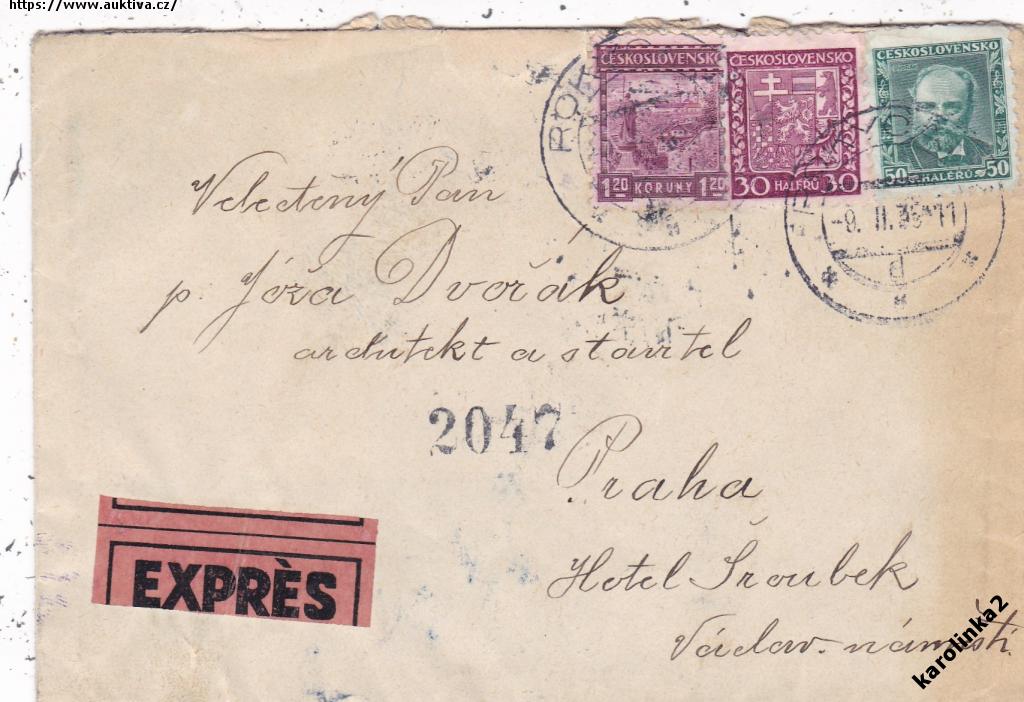 https://www.auktiva.cz/
ČESKOSLOVENSKO
1.20 KORUNY 1.20
ČESKOSLOVENSKO
30 HALÉŘŮ 30
ČESKOSLOVENSKO
50 HALÉŘŮ 50
-9. II. 11
Velectěný Pan
p. Jóža Dvořák
architekt a stavitel
2047
Praha
Hotel Šroubek
Václav. náměstí
EXPRÈS
karolinka2